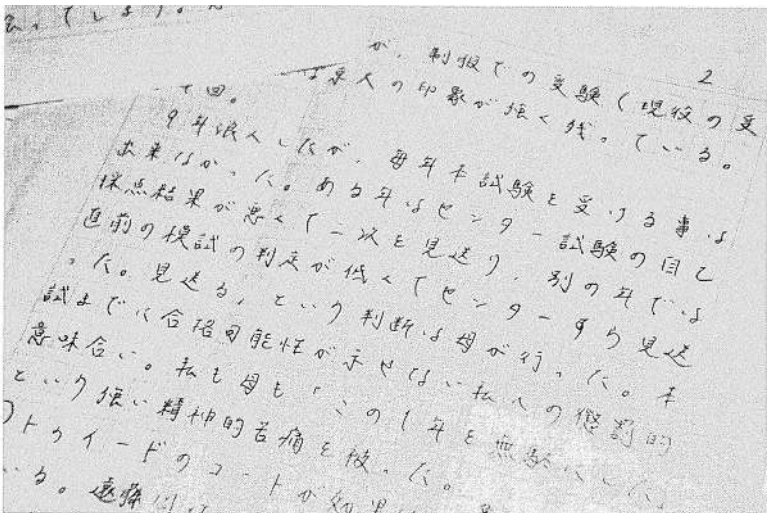 2
が、制服での受験(現役の受
て回。 は京人の印象が強く残っている。
9年浪人したが、毎年本試験を受ける事は
出来なかった。ある年はセンター試験の自己
採点結果が悪くて一次を見送り、別の年では
直前の模試の判定が低くてセンターすら見送
った。見送る、という判断は母が行った。本
試までに合格可能性が示せない私への懲罰的
意味合い。私も母も、この1年を無駄にした
という強い精神的苦痛を被った。
トゥイードのコートが
いる。